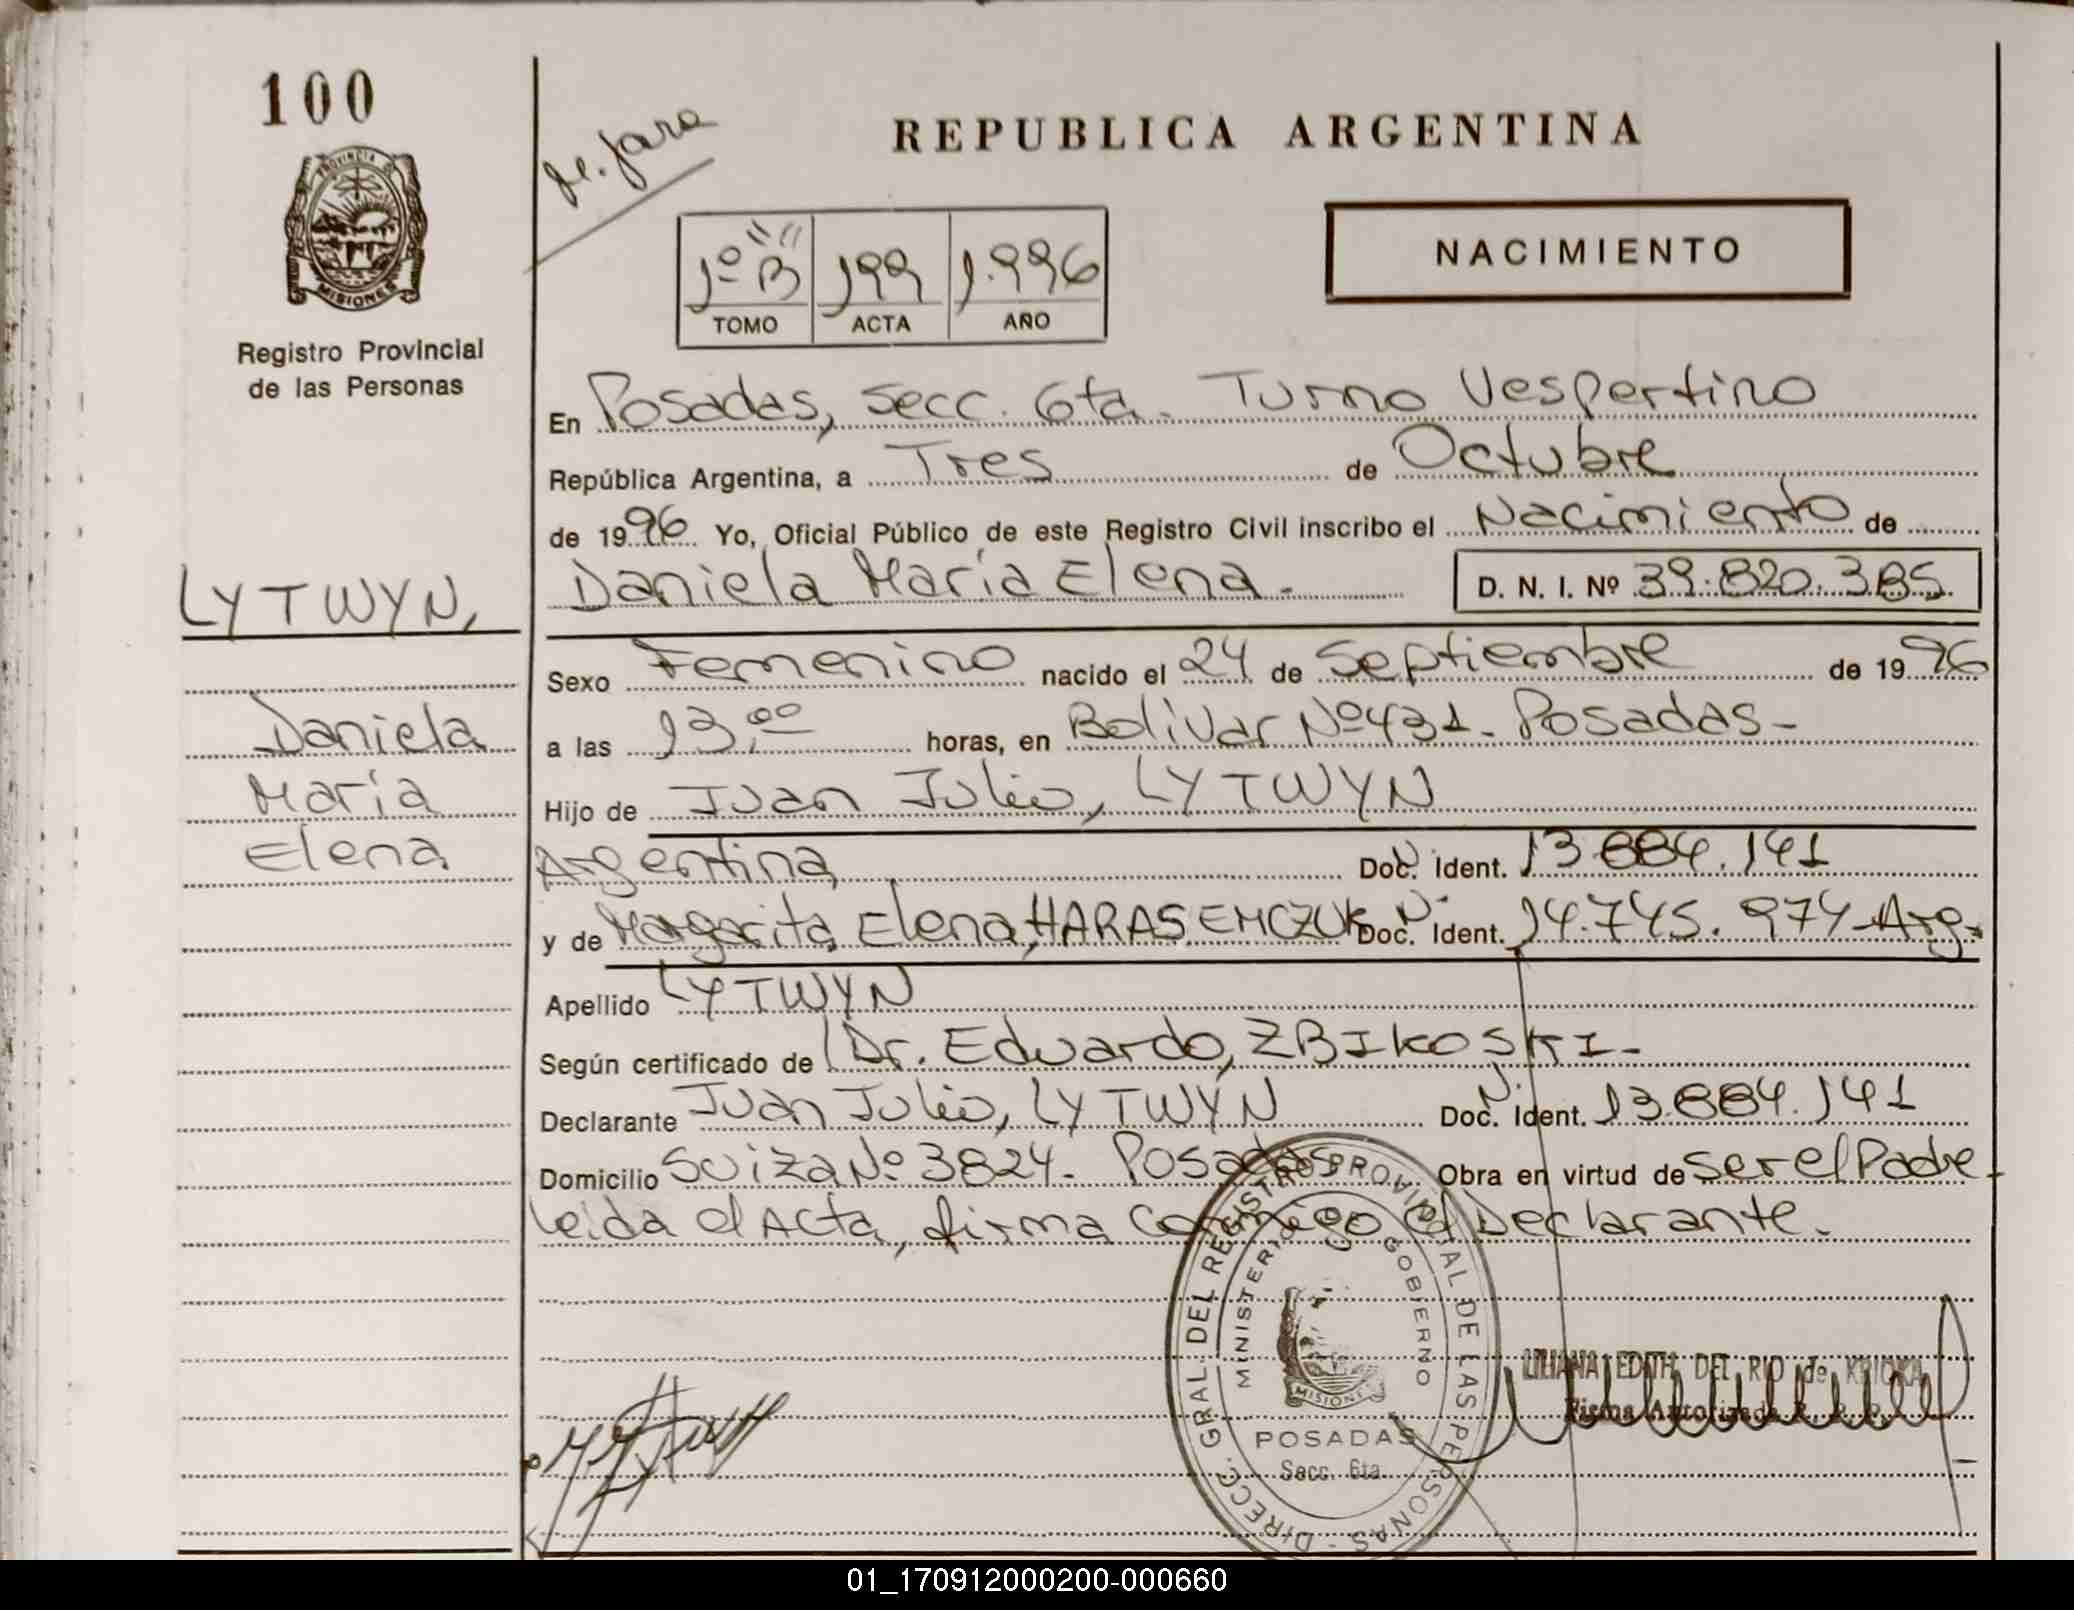 100
M. Jara
REPUBLICA ARGENTINA
PROVINCIA DE
MISIONES
1º "B" 199 1.996
TOMO ACTA AÑO
NACIMIENTO
Registro Provincial
de las Personas
En Posadas, Secc. 6ta. Turno Vespertino
República Argentina, a Tres de Octubre
de 1996 Yo, Oficial Público de este Registro Civil inscribo el Nacimiento de
Daniela María Elena. D. N. I. Nº 39.820.385
LYTWYN,
Daniela
María
Elena
Sexo Femenino nacido el 24 de Septiembre de 1996
a las 13,00 horas, en Bolivar Nº 431- Posadas-
Hijo de Juan Julio, LYTWYN
Argentina Doc. N. Ident. 13.884.141
y de Margarita Elena, HARASEMCZUK Doc. N. Ident. 14.745.974-Arg.
Apellido LYTWYN
Según certificado de Dr. Eduardo, ZBIKOSKI-
Declarante Juan Julio, LYTWYN Doc. N. Ident. 13.884.141
Domicilio Suiza Nº 3824- Posadas Obra en virtud de ser el Padre-
Leida el Acta, firma conmigo el Declarante.
DIRECC. GRAL. DEL REGISTRO PROVINCIAL DE LAS PERSONAS
MINISTERIO GOBIERNO
MISIONES
POSADAS
Secc. 6ta.
LILIANA EDITH DEL RIO de
Firma Autorizada R. P. P.
01_170912000200-000660